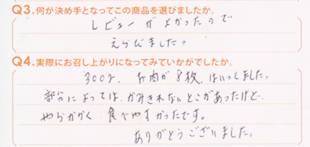 Q3.何が決め手となってこの商品を選びましたか。
レビューがよかったので
えらびました。
Q4.実際にお召し上がりになってみていかがでしたか。
300g、お肉が8枚、はいってました。
部分によっては、かみきれないとこがあったけど、
やらかかく、食べやすかったです。
ありがとうございました。